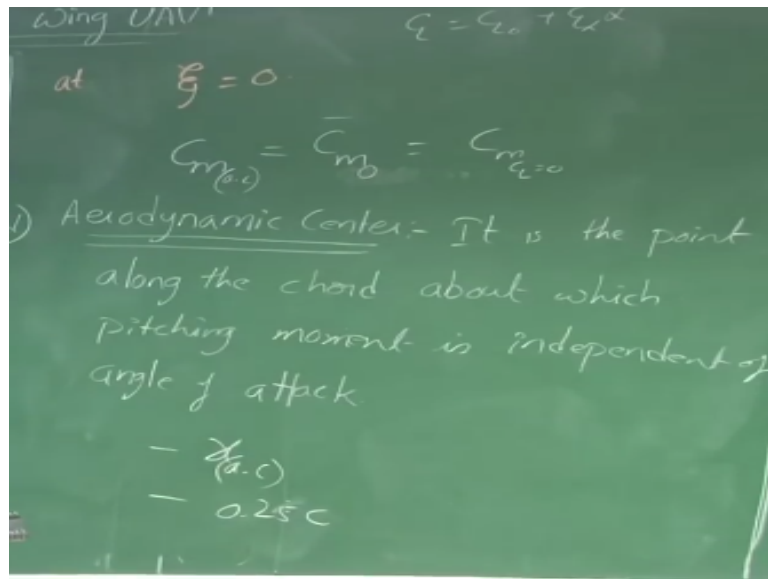 Wing UAV
C_L = C_L0 + C_Lα α
at C_L = 0
C_m(a.c) = C̄_m0 = C_m_{C_L=0}
1) Aerodynamic Center:- It is the point
along the chord about which
pitching moment is independent of
angle of attack.
- x(a.c)
- 0.25C